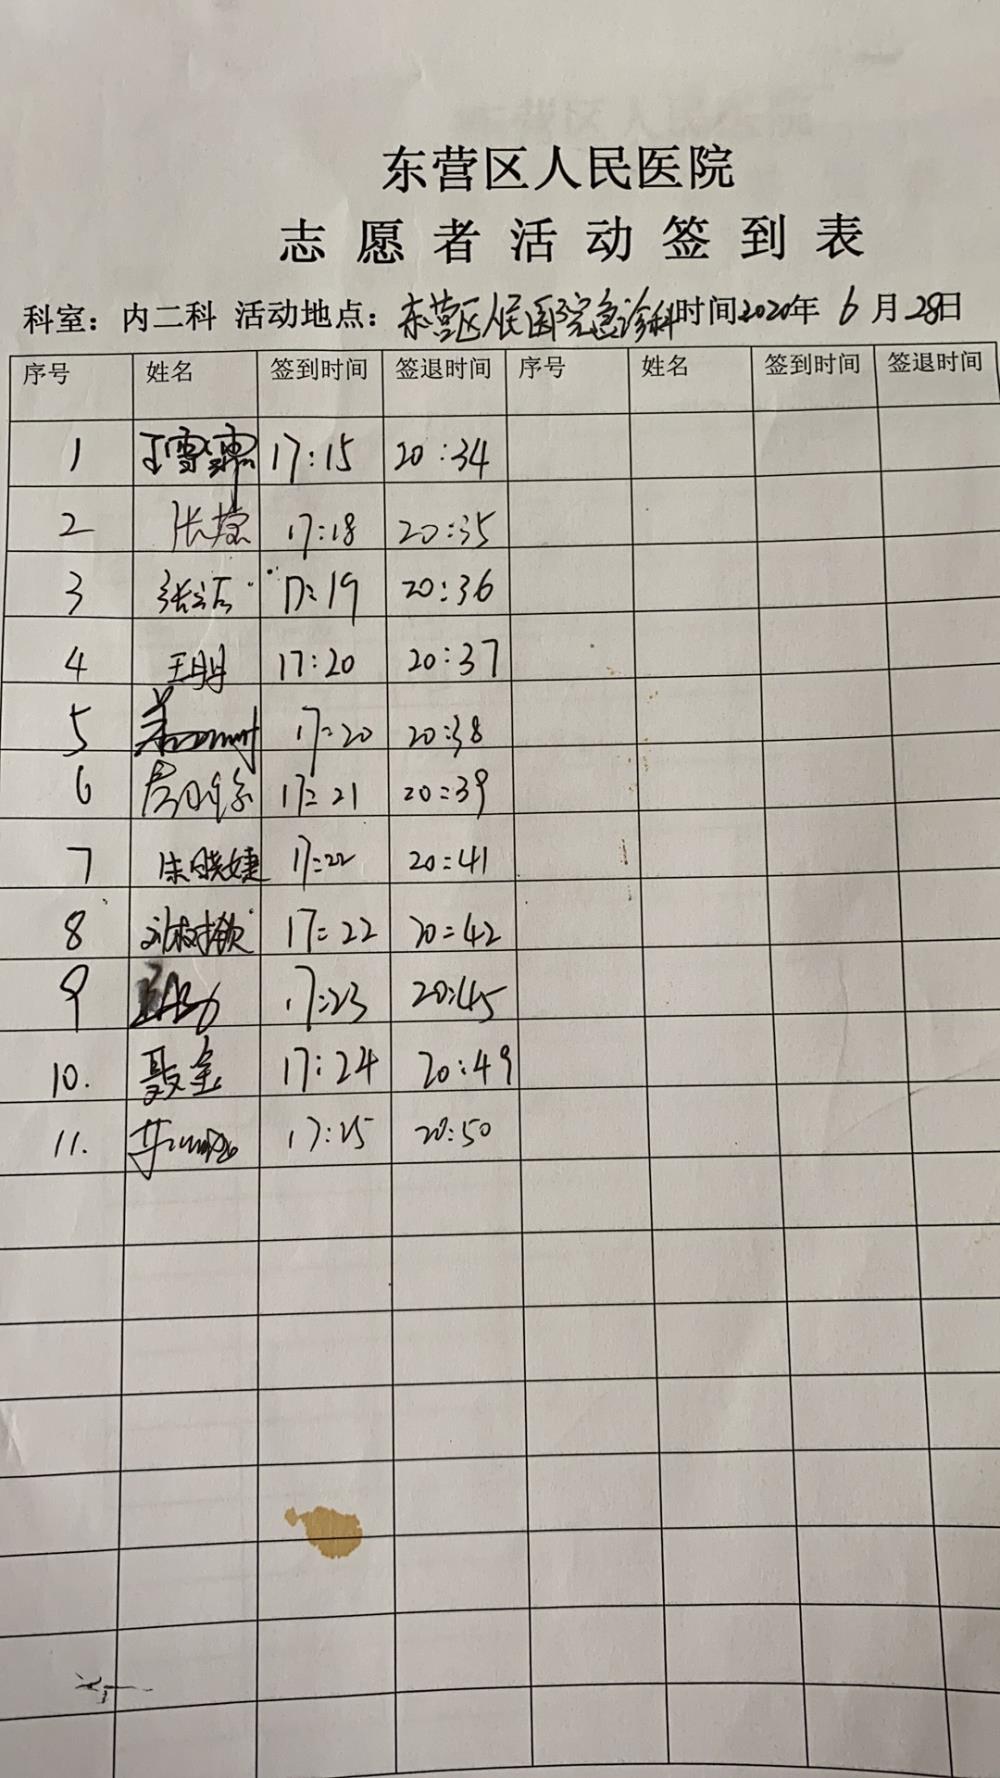 东营区人民医院
志愿者活动签到表
科室：内二科 活动地点：东营区人民医院急诊科时间2020年 6月28日
序号 姓名 签到时间 签退时间 序号 姓名 签到时间 签退时间
1 17:15 20:34
2 17:18 20:35
3 张洁 17:19 20:36
4 王明 17:20 20:37
5 17:20 20:38
6 17:21 20:39
7 朱晓婕 17:22 20:41
8 刘树钦 17:22 20:42
9 17:23 20:45
10. 聂宝 17:24 20:49
11. 17:25 20:50